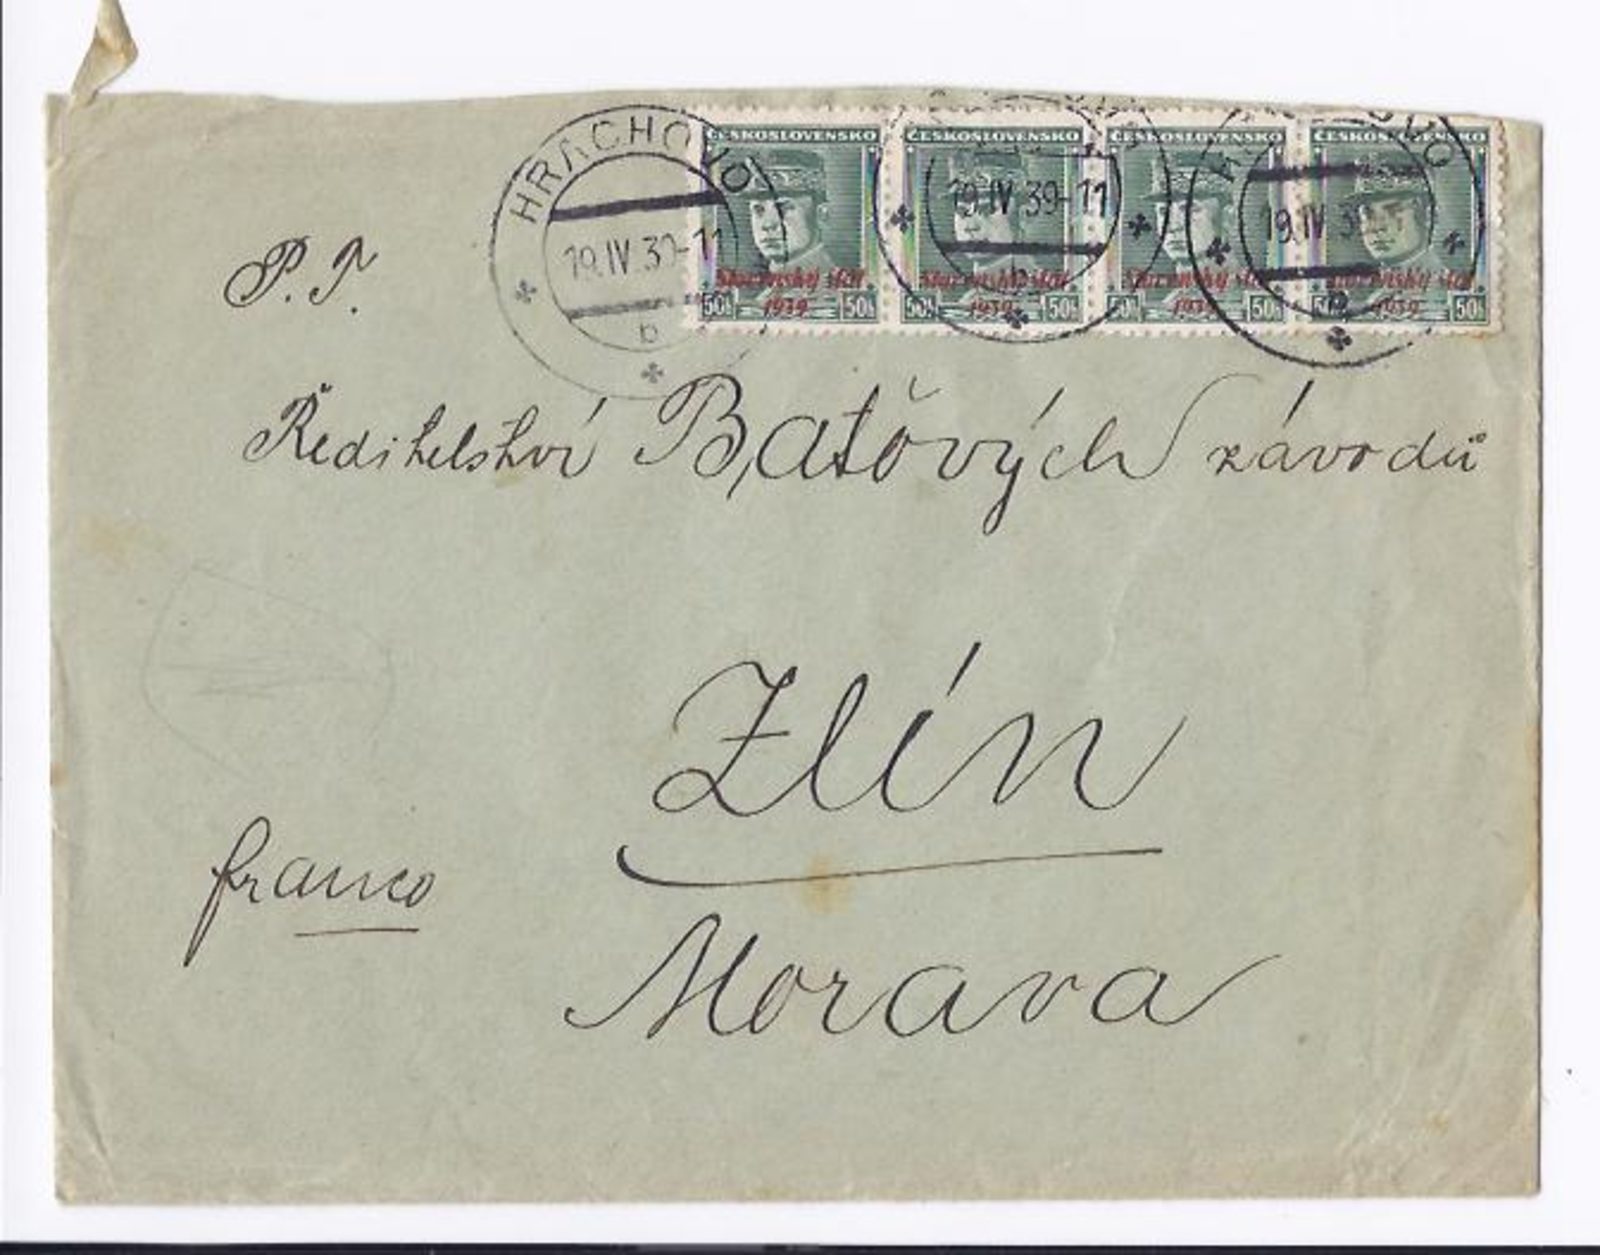 HRACHOVO
19.IV.39-11
b
ČESKOSLOVENSKO ČESKOSLOVENSKO ČESKOSLOVENSKO ČESKOSLOVENSKO
19.IV.39-11
19.IV.39-11
Slovenský štát Slovenský štát Slovenský štát Slovenský štát
1939 1939 1939 1939
50h 50h 50h 50h 50h 50h 50h 50h
P. T.
Ředitelství Baťových závodů
Zlín
franco
Morava